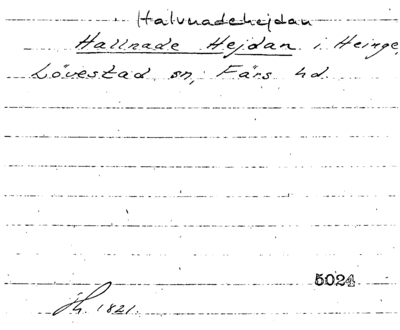 Halvnadehejdan
Hallnade Hejdan i Heinge,
Lövestad sn, Färs hd.
5024
1821.